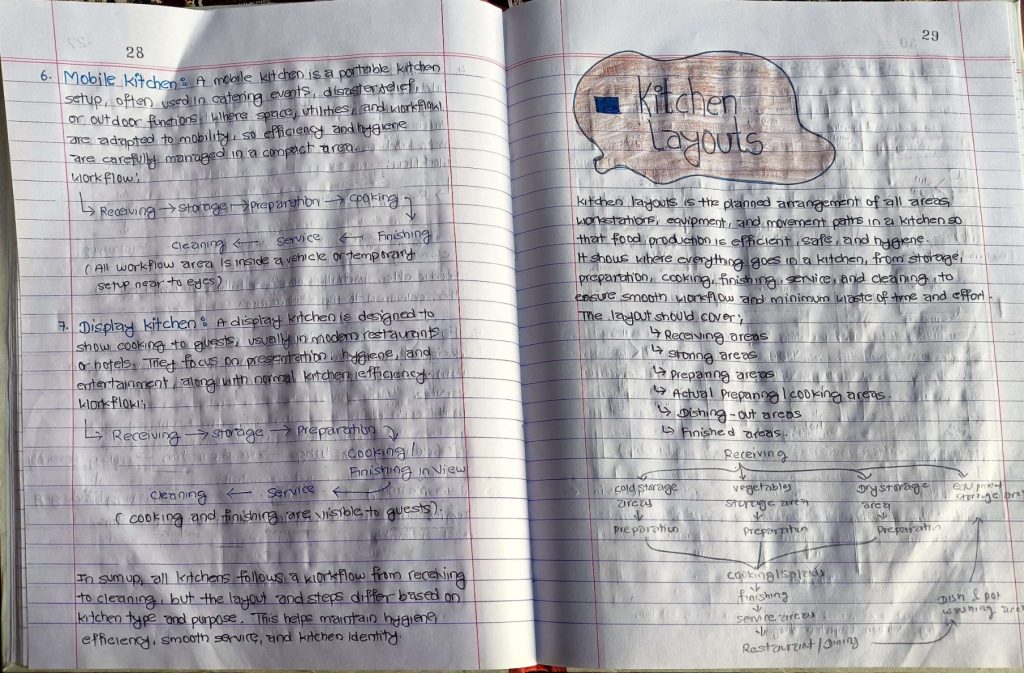 28
6. Mobile kitchen: A mobile kitchen is a portable kitchen
setup, often used in catering events, disaster relief,
or outdoor functions, where space, utilities, and workflow
are adapted to mobility, so efficiency and hygiene
are carefully managed in a compact area.
workflow;
↳ Receiving → storage → Preparation → cooking
cleaning ← service ← Finishing
(All workflow area is inside a vehicle or temporary
setup near to eyes)
7. Display kitchen: A display kitchen is designed to
show cooking to guests, usually in modern restaurants
or hotels. They focus on presentation, hygiene, and
entertainment, along with normal kitchen efficiency.
workflow;
↳ Receiving → storage → Preparation
cooking/
Finishing in View
cleaning ← service ←
(cooking and finishing are visible to guests).
In sum up, all kitchens follows a workflow from receiving
to cleaning, but the layout and steps differ based on
kitchen type and purpose. This helps maintain hygiene,
efficiency, smooth service, and kitchen identity.
29
Kitchen
Layouts
Kitchen layouts is the planned arrangement of all areas,
workstations, equipment, and movement paths in a kitchen so
that food production is efficient, safe, and hygiene.
It shows where everything goes in a kitchen, from storage,
preparation, cooking, finishing, service, and cleaning, to
ensure smooth workflow and minimum waste of time and effort.
The layout should cover;
↳ Receiving areas
↳ storing areas
↳ Preparing areas
↳ Actual Preparing/cooking areas.
↳ Dishing-out areas
↳ Finished areas.
Receiving
cold storage vegetables Dry storage
areas storage area area
storage area
Preparation Preparation Preparation
finishing
service areas
Dish & pot
washing area
Restaurant/Dining